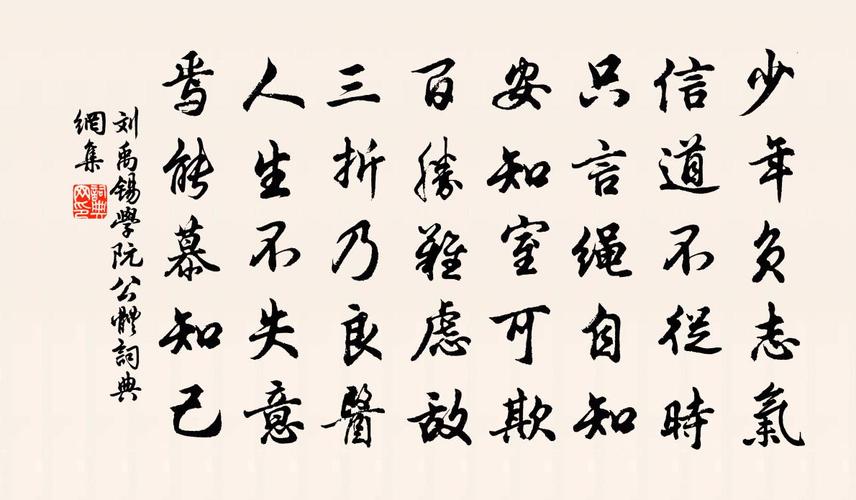 少年负志氣
信道不從時
只言绳自知
安知室可欺
百勝難慮敌
三折乃良醫
人生不失意
焉能慕知己
刘禹锡學阮公體詞典
網集
詞典
网印